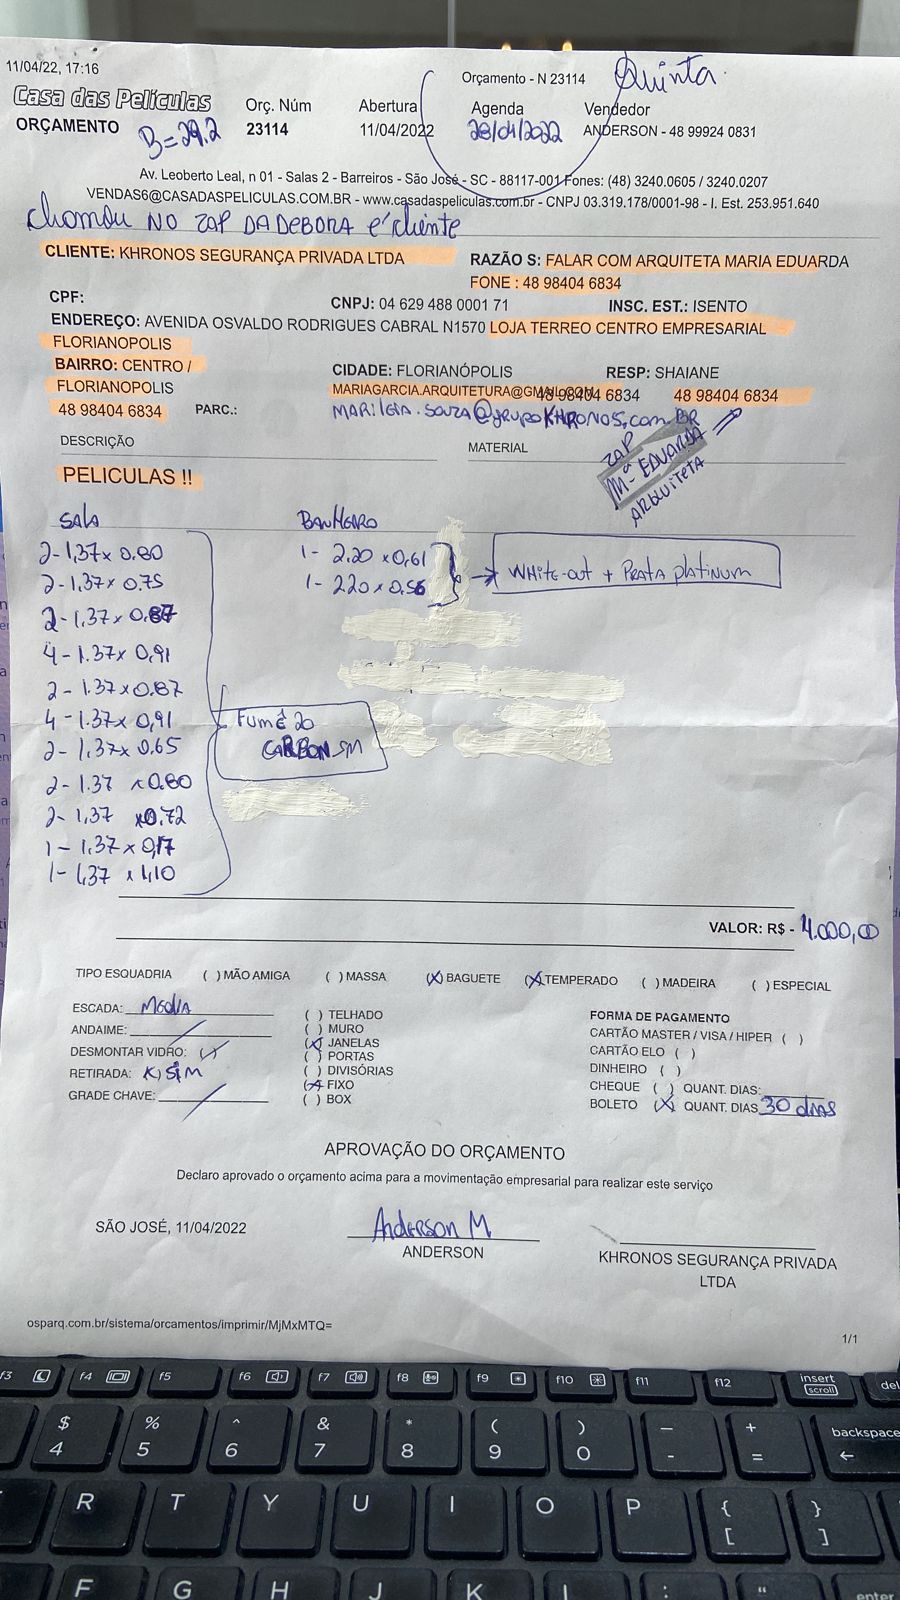 11/04/22, 17:16
Orçamento - N 23114 Quinta
Casa das Películas
Orç. Núm Abertura Agenda Vendedor
ORÇAMENTO B=29.2 23114 11/04/2022 28/04/2022 ANDERSON - 48 99924 0831
Av. Leoberto Leal, n 01 - Salas 2 - Barreiros - São José - SC - 88117-001 Fones: (48) 3240.0605 / 3240.0207
VENDAS6@CASADASPELICULAS.COM.BR - www.casadaspeliculas.com.br - CNPJ 03.319.178/0001-98 - I. Est. 253.951.640
Chamou NO ZAP DA DEBORA é cliente
CLIENTE: KHRONOS SEGURANÇA PRIVADA LTDA RAZÃO S: FALAR COM ARQUITETA MARIA EDUARDA
FONE : 48 98404 6834
CPF: CNPJ: 04 629 488 0001 71 INSC. EST.: ISENTO
ENDEREÇO: AVENIDA OSVALDO RODRIGUES CABRAL N1570 LOJA TERREO CENTRO EMPRESARIAL
FLORIANOPOLIS
BAIRRO: CENTRO / CIDADE: FLORIANÓPOLIS RESP: SHAIANE
FLORIANOPOLIS MARIAGARCIA.ARQUITETURA@GMAIL.COM 48 98404 6834 48 98404 6834
48 98404 6834 PARC.: MARILEIA.SOUZA@GRUPOKHRONOS.COM.BR
DESCRIÇÃO MATERIAL
ZAP
Mª EDUARDA
ARQUITETA
PELICULAS !!
SALA BANHEIRO
2-1,37x0.80 1- 2.20 x0,61
2-1,37x0.75 1- 2.20x0.56 WHITE-OUT + PRATA PLATINUM
2-1,37x0.87
4-1.37x 0,91
2-1.37x0.87
4-1.37x 0,91 FUMÊ 20
2-1,37x0.65 CARBON SM
2-1.37 x0.80
2-1,37 x0.72
1-1,37x0,17
1-1,37 x 1,10
VALOR: R$ - 4.000,00
TIPO ESQUADRIA ( ) MÃO AMIGA ( ) MASSA (X) BAGUETE (X) TEMPERADO ( ) MADEIRA ( ) ESPECIAL
ESCADA: MEDIA ( ) TELHADO FORMA DE PAGAMENTO
ANDAIME: / ( ) MURO CARTÃO MASTER / VISA / HIPER ( )
DESMONTAR VIDRO: (/) (X) JANELAS CARTÃO ELO ( )
( ) PORTAS DINHEIRO ( )
RETIRADA: (X) SIM ( ) DIVISÓRIAS
GRADE CHAVE: / (X) FIXO CHEQUE ( ) QUANT. DIAS:
( ) BOX BOLETO (X) QUANT. DIAS 30 dias
APROVAÇÃO DO ORÇAMENTO
Declaro aprovado o orçamento acima para a movimentação empresarial para realizar este serviço
SÃO JOSÉ, 11/04/2022 Anderson M.
ANDERSON KHRONOS SEGURANÇA PRIVADA
LTDA
osparq.com.br/sistema/orcamentos/imprimir/MjMxMTQ=
1/1
f3 f4 f5 f6 f7 f8 f9 f10 f11 f12 insert del
scroll
$ % ^ & * ( ) — + backspace
4 5 6 7 8 9 0 - =
R T Y U I O P { }
[ ]
F G H J K L : " enter